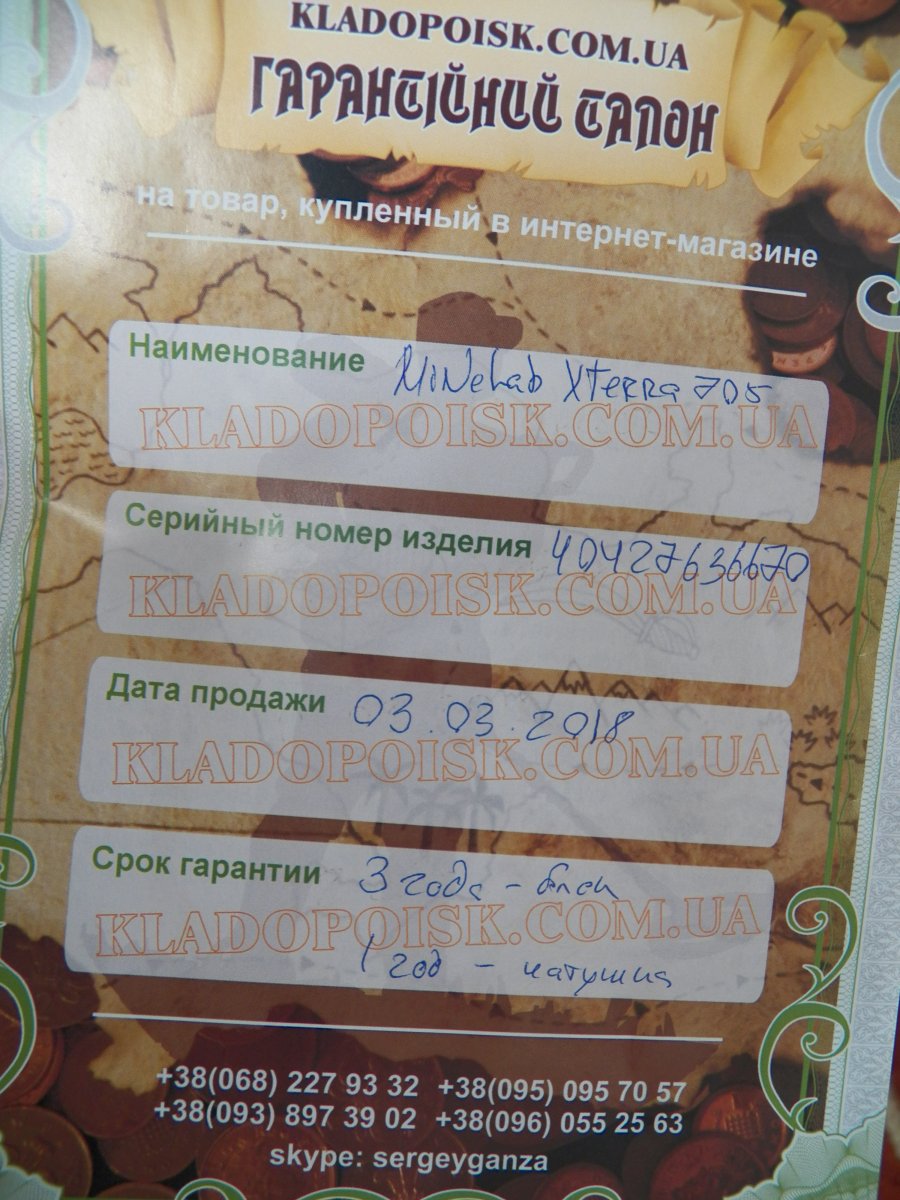 KLADOPOISK.COM.UA
ГАРАНТІЙНИЙ ТАЛОН
на товар, купленный в интернет-магазине
Наименование MiNeLab XTerra 705
KLADOPOISK.COM.UA
Серийный номер изделия 40427636670
KLADOPOISK.COM.UA
Дата продажи 03.03.2018
KLADOPOISK.COM.UA
Срок гарантии 3 года - блок
KLADOPOISK.COM.UA
1 год - катушка
+38(068) 227 93 32 +38(095) 095 70 57
+38(093) 897 39 02 +38(096) 055 25 63
skype: sergeyganza